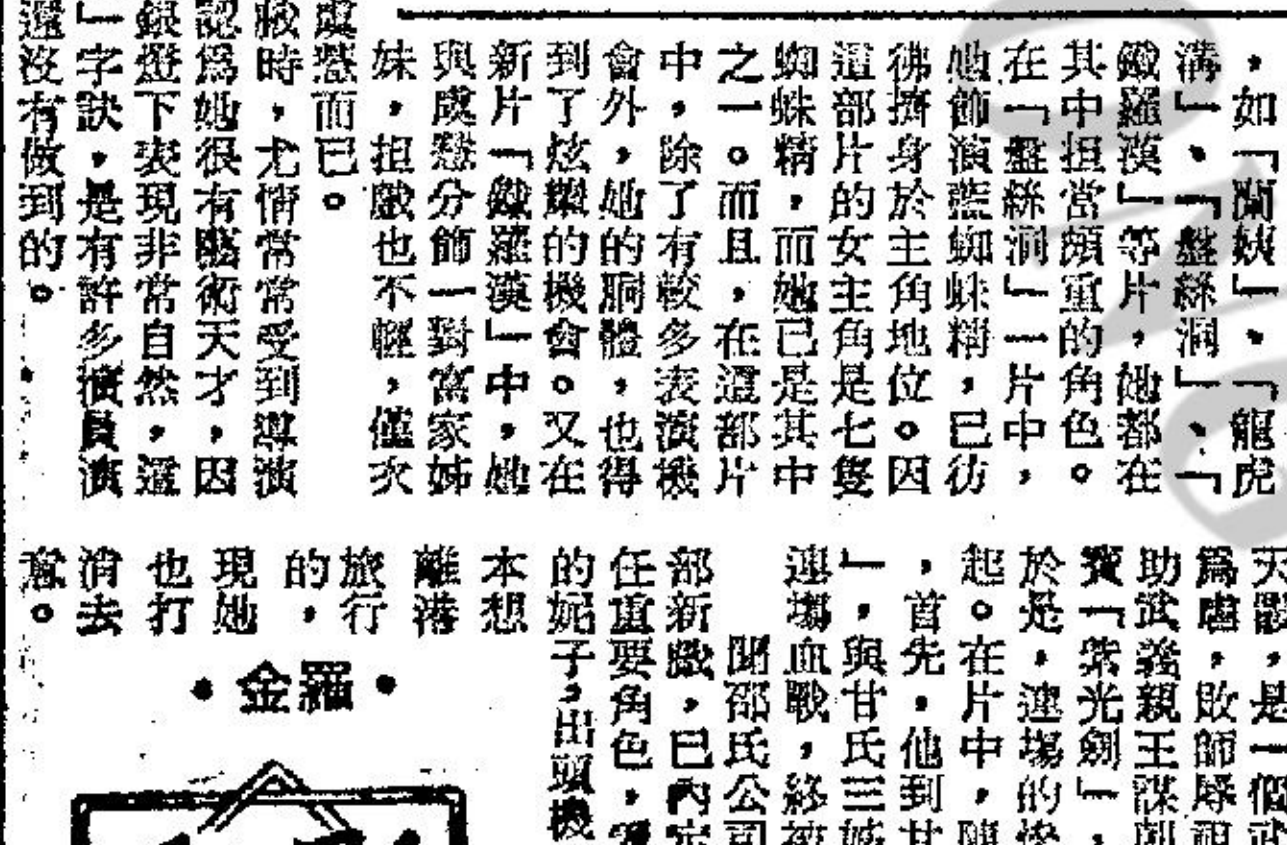 ，如「蘭姨」、「龍虎
溝」、「盤絲洞」、「
鐵羅漢」等片，她都在
其中担當頗重的角色。
在「盤絲洞」一片中，
她飾演藍蜘蛛精，已彷
彿擠身於主角地位。因
這部片的女主角是七隻
蜘蛛精，而她已是其中
之一。而且，在這部片
中，除了有較多表演機
會外，她的胴體，也得
到了炫耀的機會。又在
新片「鐵羅漢」中，她
與虞慧分飾一對富家姊
妹，担戲也不輕，僅次
虞慧而已。
時，尤情常常受到導演
認為她很有藝術天才，因
銀燈下表現非常自然，這
」字訣，是有許多演員演
還沒有做到的。
天觀，是一個武
為虐，敗師辱祖
助武義親王謀朝
寶「紫光劍」，
於是，連場的
起。在片中，陳
，首先，他到甘
」，與甘氏三
連場血戰，終被
聞邵氏公司
部新戲，已內定
任重要角色，
的妮子，出頭機
本想
離港
旅行
的，
現她
也打
消去
意。
•金羅•